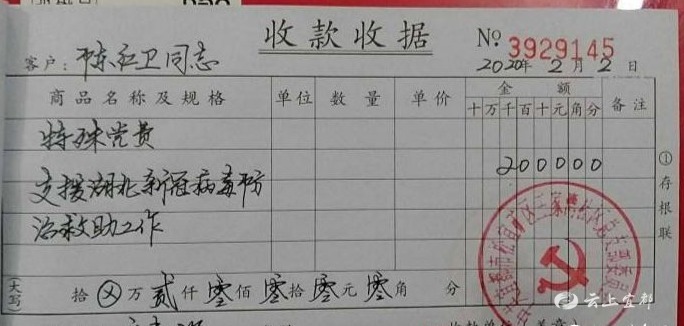 收款收据 № 3929145
客户:陈红卫同志 2020年2月2日
商品名称及规格 单位 数量 单价 金额 备注
十万千百十元角分
特殊党费
200000
支援湖北新冠病毒防
治救助工作
①存根联
(大写) 拾⊗万贰仟零佰零拾零元零角 分
云上宜都